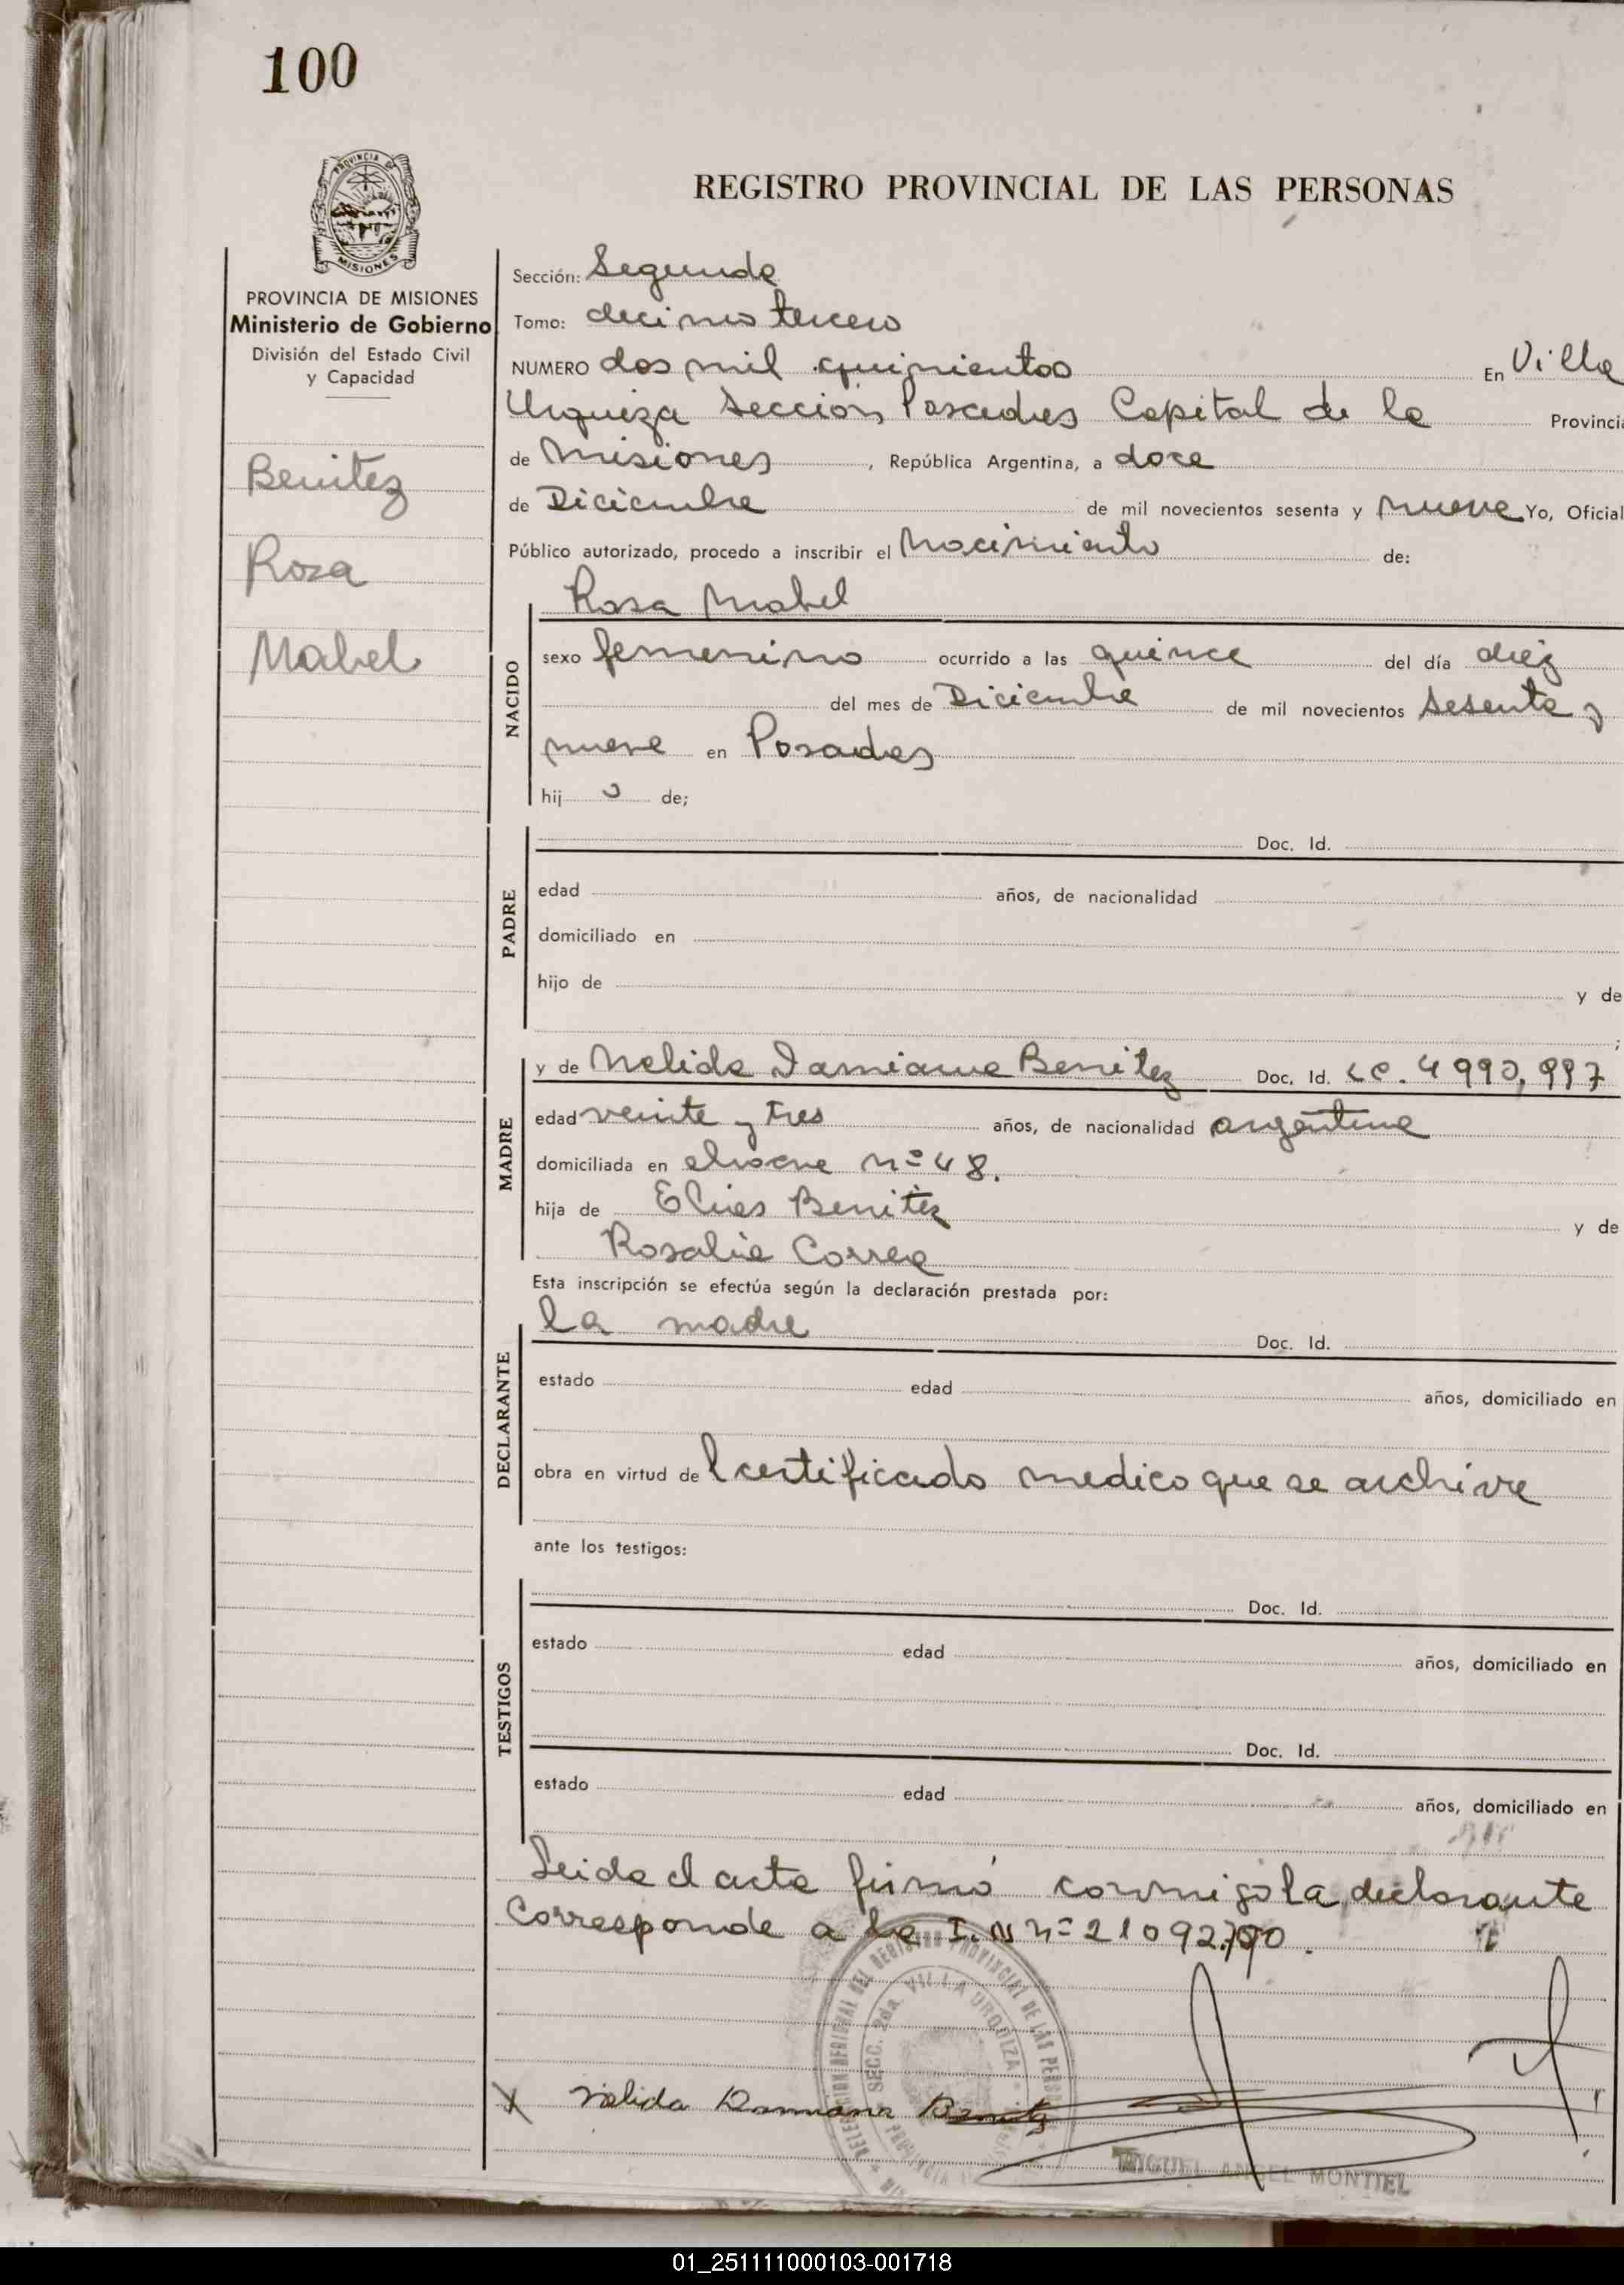 100
PROVINCIA DE MISIONES
PROVINCIA DE MISIONES
Ministerio de Gobierno
División del Estado Civil
y Capacidad
Benitez
Rosa
Mabel
REGISTRO PROVINCIAL DE LAS PERSONAS
Sección: Segunda
Tomo: decimo tercero
NUMERO dos mil quinientos En Villa
Urquiza Seccion Posadas Capital de la Provincia
de Misiones, República Argentina, a doce
de Diciembre de mil novecientos sesenta y nueve Yo, Oficial
Público autorizado, procedo a inscribir el Nacimiento de:
NACIDO
Rosa Mabel
sexo femenino ocurrido a las quince del día diez
del mes de Diciembre de mil novecientos sesenta y
nueve en Posadas
hij a de;
PADRE
Doc. Id.
edad años, de nacionalidad
domiciliado en
hijo de y de
;
MADRE
y de Nelida Damiana Benitez Doc. Id. LC. 4990,997
edad veinte y tres años, de nacionalidad argentina
domiciliada en nº 48.
hija de Elias Benitez y de
Rosalia Correa
Esta inscripción se efectúa según la declaración prestada por:
DECLARANTE
la madre Doc. Id.
estado edad años, domiciliado en
obra en virtud de l certificado medico que se archiva
ante los testigos:
TESTIGOS
Doc. Id.
estado edad años, domiciliado en
Doc. Id.
estado edad años, domiciliado en
Leida el acta firmó conmigo la declarante
Corresponde a la I.N nº 21092.790.
DELEGACION REGIONAL DEL REGISTRO PROVINCIAL DE LAS PERSONAS
SECC. 2da. VILLA URQUIZA
x Nelida Damiana Benitez
MIGUEL ANGEL MONTIEL
01_251111000103-001718